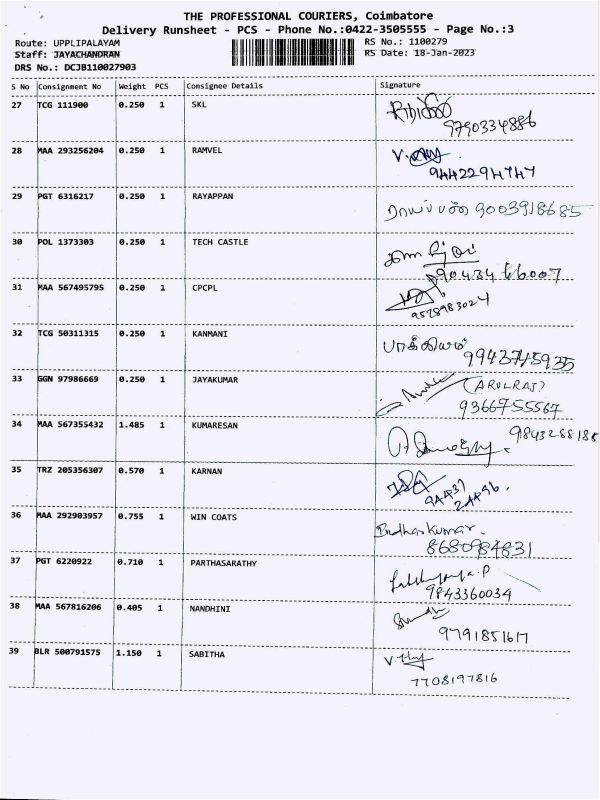 THE PROFESSIONAL COURIERS, Coimbatore
Delivery Runsheet - PCS - Phone No.:0422-3505555 - Page No.:3
Route: UPPLIPALAYAM RS No.: 1100279
Staff: JAYACHANDRAN RS Date: 18-Jan-2023
DRS No.: DCJB110027903
S No Consignment No Weight PCS Consignee Details Signature
27 TCG 111900 0.250 1 SKL
9790334886
28 MAA 293256204 0.250 1 RAMVEL
9442294747
29 PGT 6316217 0.250 1 RAYAPPAN ராயப்பன் 9003918685
30 POL 1373303 0.250 1 TECH CASTLE
9043466007
31 MAA 567495795 0.250 1 CPCPL
9578983024
32 TCG 50311315 0.250 1 KANMANI பாக்கியம்
9943745935
33 GGN 97986669 0.250 1 JAYAKUMAR (ARULRAJ)
9366755567
34 MAA 567355432 1.485 1 KUMARESAN 9843288188
35 TRZ 205356307 0.570 1 KARNAN
94437
24496.
36 MAA 292903957 0.755 1 WIN COATS
8680984831
37 PGT 6220922 0.710 1 PARTHASARATHY
9843360034
38 MAA 567816206 0.405 1 NANDHINI
9791851617
39 BLR 500791575 1.150 1 SABITHA
7708197816